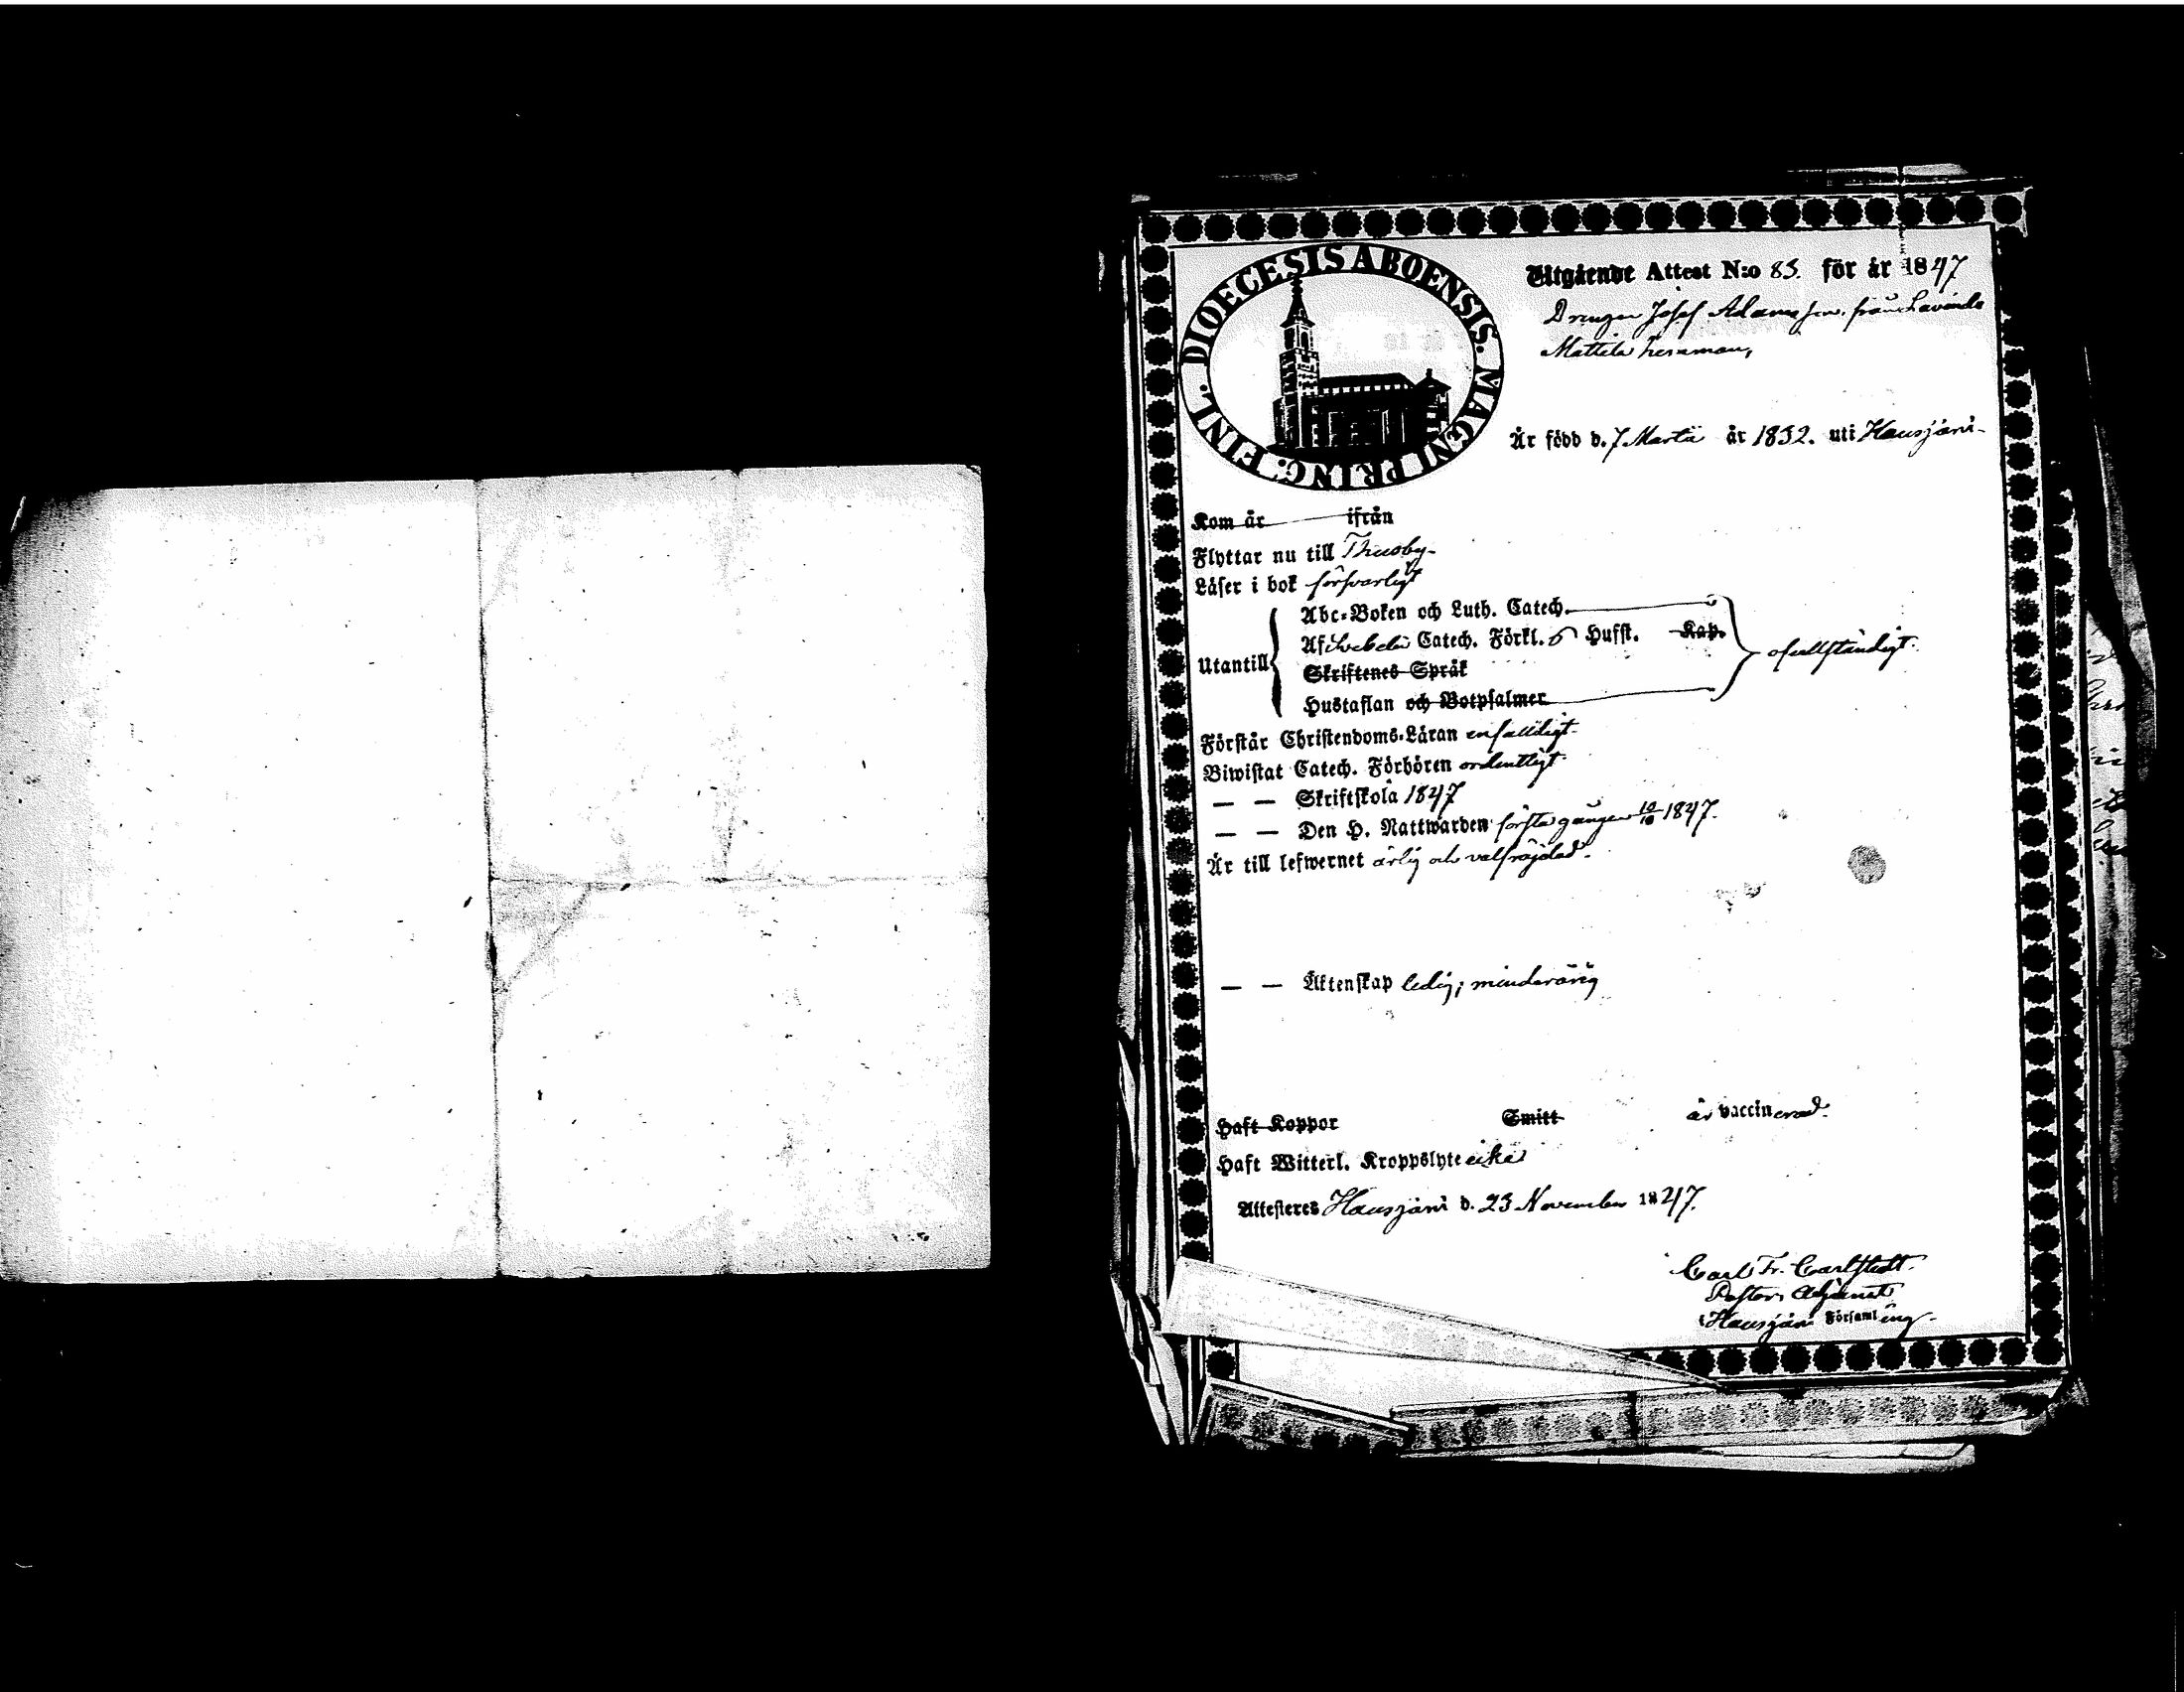 DIOECESIS ABOENSIS. MAGNI PRINC. FINL.
Utgående Attest N:o 85. för år 1847
Drengen Josef Adamsson från Lavinda
Mattila hemman,
Är född d. 7 Martii år 1832. uti Hausjärvi
Kom år ifrån
Flyttar nu till Thusby
Läser i bok försvarligt
Utantill
Abc-Boken och Luth. Catech.
Af Svebelii Catech. Förkl. 5 Husst. Kap.
Skriftenes Språk
Hustaflan och Botpsalmer
ofullständigt.
Förstår Christendoms-Läran enfaldigt.
Biwistat Catech. Förhören ordentligt.
— — Skriftskola 1847
— — Den H. Nattwarden första gången 10/10 1847.
Är till lefwernet ärlig och välfräjdad.
— — Äktenskap ledig; minderårig
Haft Koppor Smitt är vaccinerad.
Haft Witterl. Kroppslyte icke
Attesteres Hausjärvi d. 23 November 1847.
Carl Fr. Carlstedt.
Pastors Adjunct
i Hausjärvi Församling.